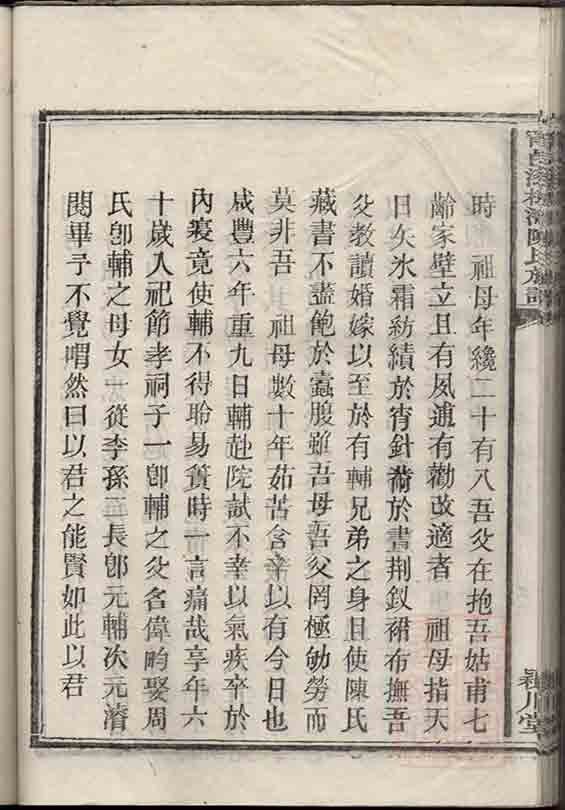 時　祖母年纔二十有八吾父在抱吾姑甫七
齡家壁立且有夙逋有勸改適者　祖母指天
日矢氷霜紡績於宵針黹於晝荆釵裙布撫吾
父教讀婚嫁以至於有輔兄弟之身且使陳氏
藏書不盡飽於蠹腹雖吾母吾父罔極劬勞而
莫非吾　祖母數十年茹苦含辛以有今日也
咸豐六年重九日輔赴院試不幸以氣疾卒於
內寢竟使輔不得聆易簀時一言痛哉享年六
十歲入祀節孝祠子一卽輔之父名偉畇娶周
氏卽輔之母女一從李孫二長卽元輔次元濬
閱畢予不覺喟然曰以君之能賢如此以君
陳氏族譜
潁川堂